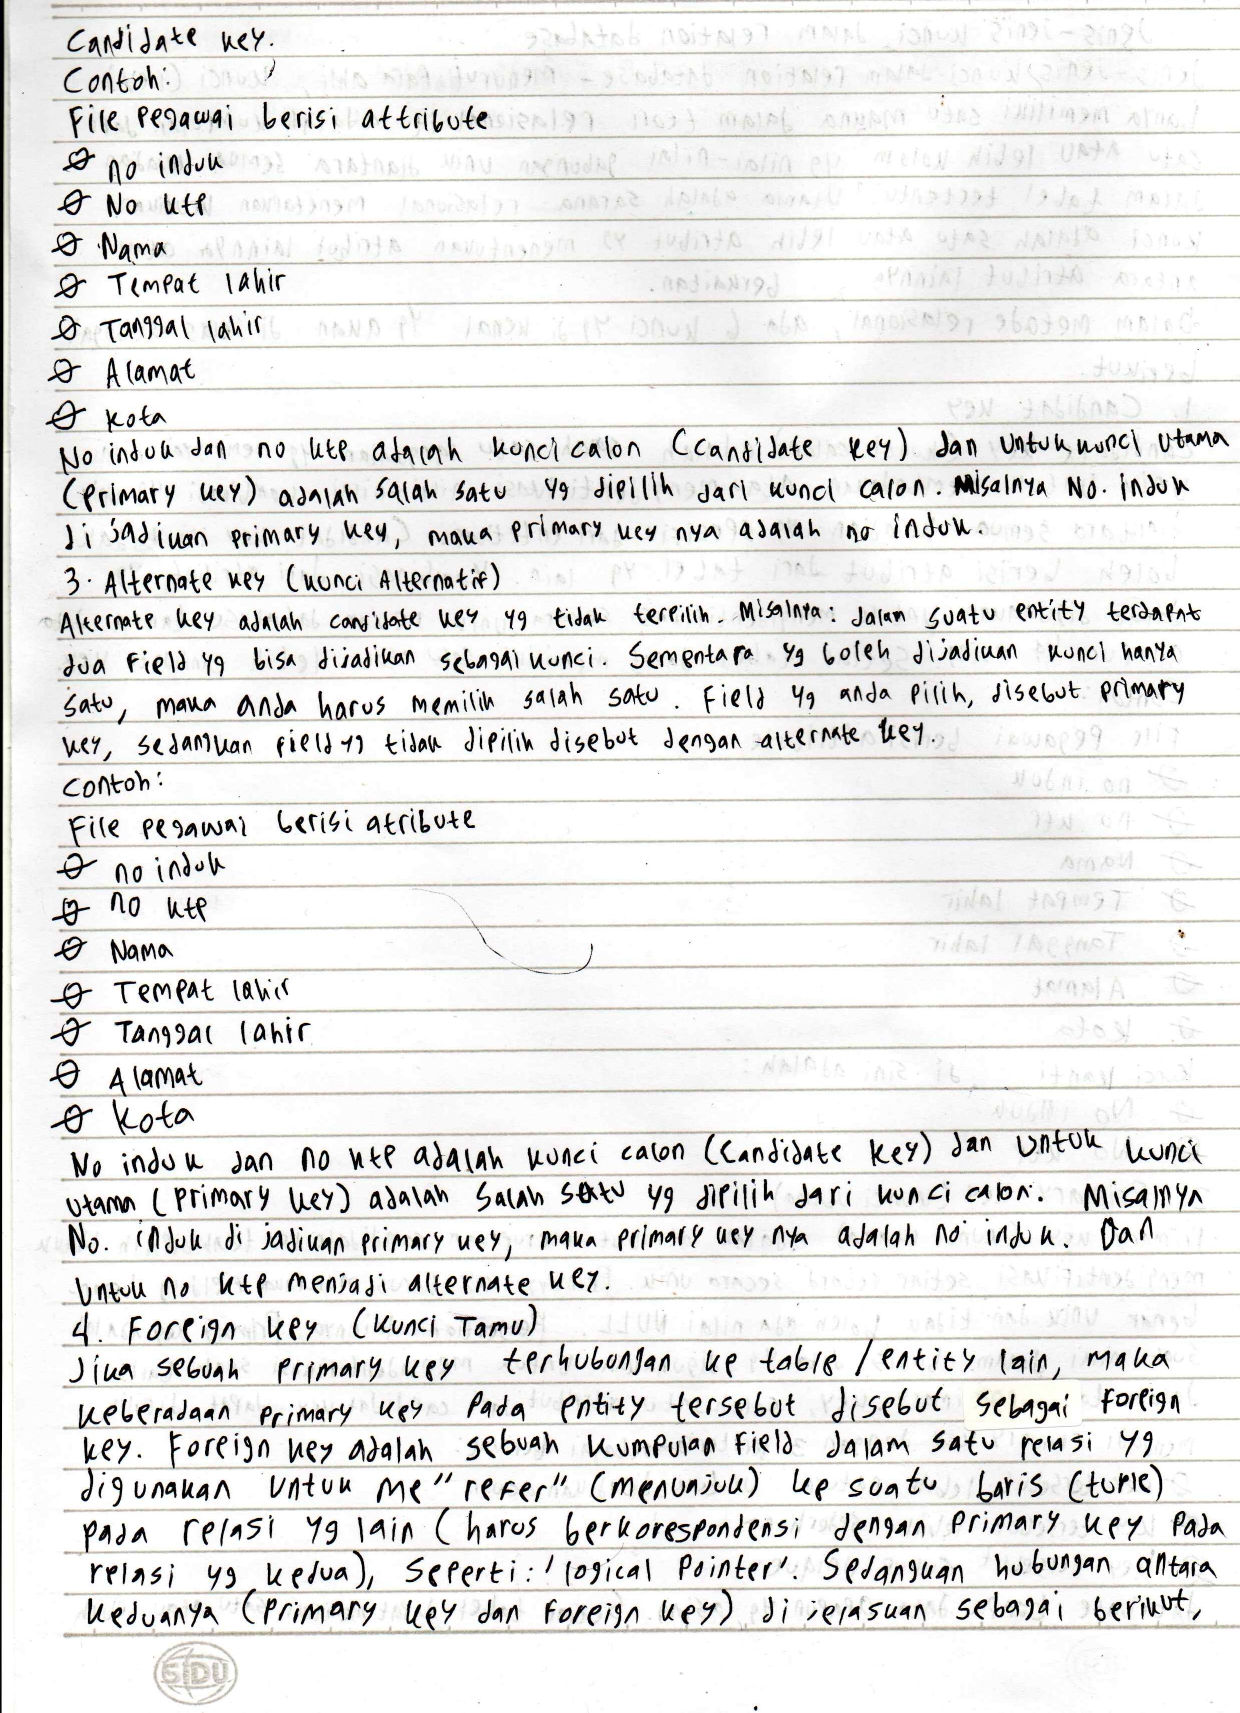 Candidate key.
Contoh:
File pegawai berisi attribute
no induk
No ktp
Nama
Tempat lahir
Tanggal lahir
Alamat
kota
No induk dan no ktp adalah kunci calon (Candidate key) dan Untuk kunci utama
(primary key) adalah salah satu yg dipilih dari kunci calon. Misalnya No. induk
di jadikan primary key, maka primary key nya adalah no induk.
3. Alternate key (kunci Alternatif)
Alternate key adalah candidate key yg tidak terpilih. Misalnya: dalam suatu entity terdapat
dua Field yg bisa dijadikan sebagai kunci. Sementara yg boleh dijadikan kunci hanya
satu, maka anda harus memilih salah satu. Field yg anda pilih, disebut primary
key, sedangkan field yg tidak dipilih disebut dengan alternate key.
Contoh:
File pegawai berisi atribute
no induk
no ktp
Nama
Tempat lahir
Tanggal lahir
Alamat
kota
No induk dan no ktp adalah kunci calon (Candidate key) dan Untuk kunci
utama (primary key) adalah salah satu yg dipilih dari kunci calon. Misalnya
No. induk di jadikan primary key, maka primary key nya adalah no induk. Dan
Untuk no ktp menjadi alternate key.
4. Foreign key (kunci Tamu)
Jika sebuah primary key terhubungan ke table/entity lain, maka
keberadaan primary key pada entity tersebut disebut sebagai foreign
key. Foreign key adalah sebuah kumpulan Field dalam satu relasi yg
digunakan untuk me"refer" (menunjuk) ke suatu baris (tuple)
pada relasi yg lain (harus berkorespondensi dengan primary key pada
relasi yg kedua), seperti: 'logical pointer'. Sedangkan hubungan antara
keduanya (primary key dan foreign key) di jelaskan sebagai berikut,
SIDU